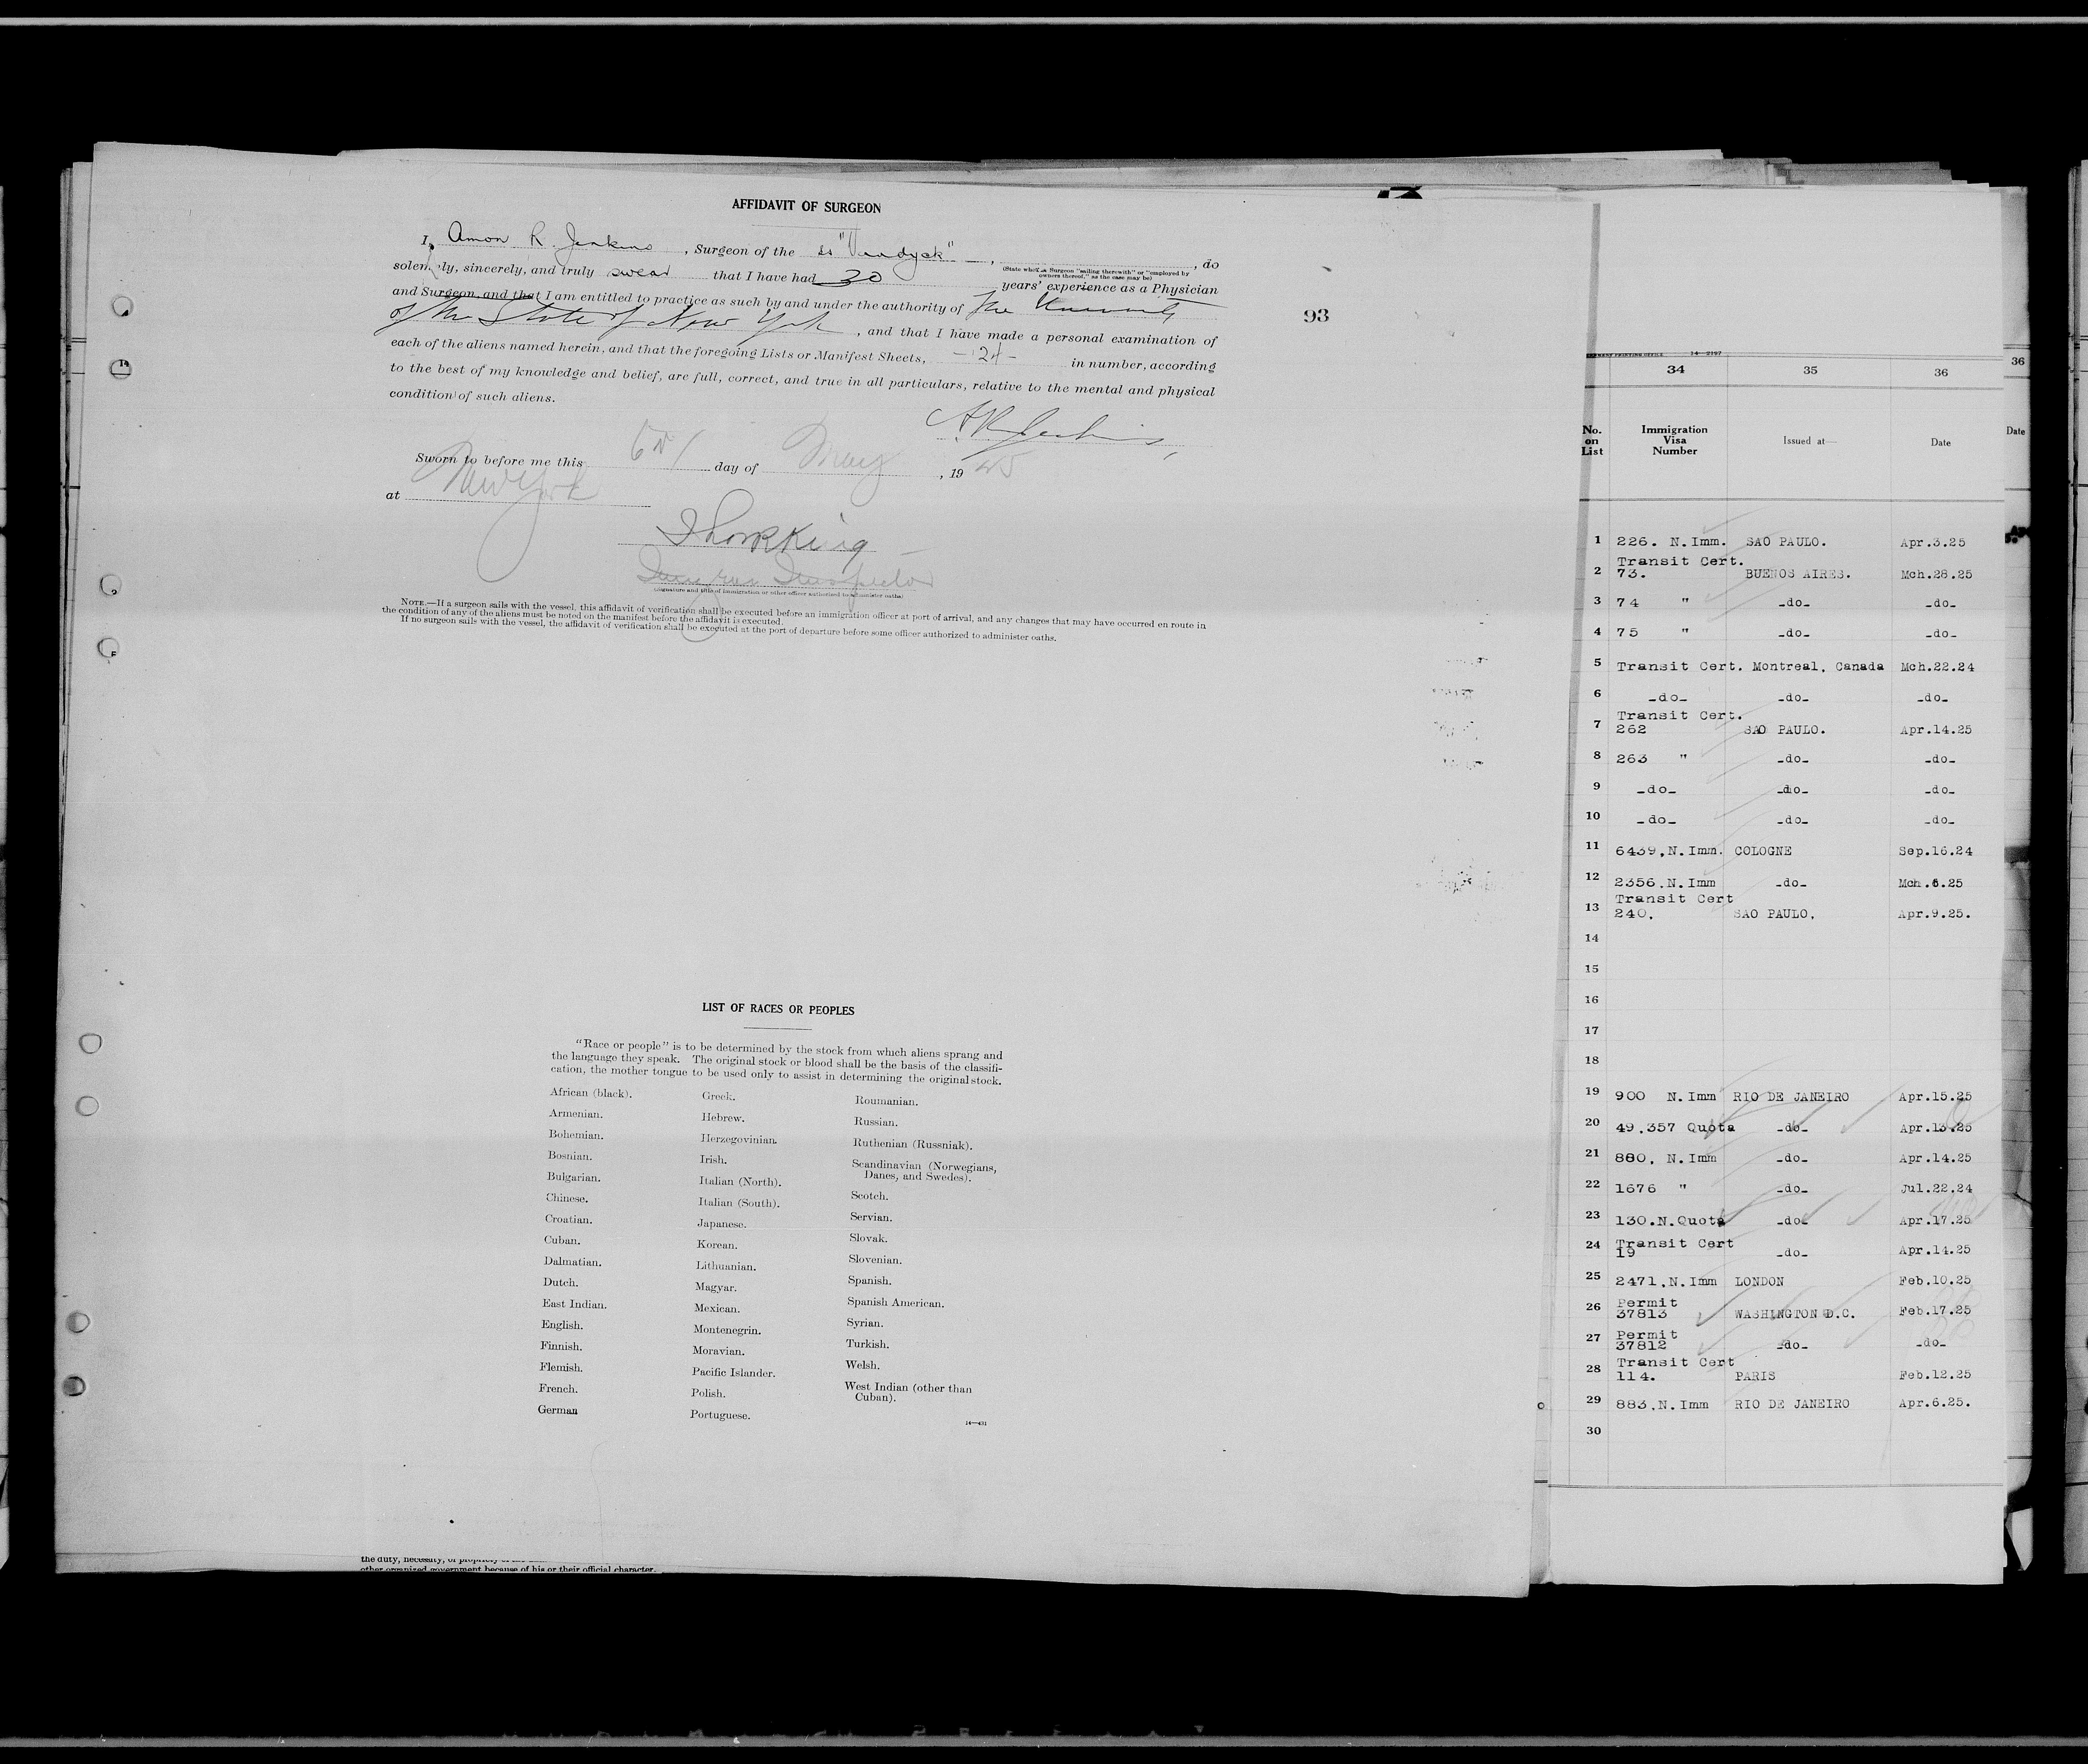 AFFIDAVIT OF SURGEON
I, Amon R. Jenkins, Surgeon of the ss "Vandyck", do
(State whether Surgeon "sailing therewith" or "employed by
owners thereof," as the case may be)
solemnly, sincerely, and truly swear that I have had 30 years' experience as a Physician
and Surgeon and that I am entitled to practice as such by and under the authority of The University
of the State of New York, and that I have made a personal examination of
each of the aliens named herein, and that the foregoing Lists or Manifest Sheets, -24- in number, according
to the best of my knowledge and belief, are full, correct, and true in all particulars, relative to the mental and physical
condition of such aliens.
A R Jenkins
Sworn to before me this day of May, 1925
at New York
Inspector
(Signature and title of immigration or other officer authorized to administer oaths)
NOTE.—If a surgeon sails with the vessel, this affidavit of verification shall be executed before an immigration officer at port of arrival, and any changes that may have occurred en route in
the condition of any of the aliens must be noted on the manifest before the affidavit is executed.
If no surgeon sails with the vessel, the affidavit of verification shall be executed at the port of departure before some officer authorized to administer oaths.
93
LIST OF RACES OR PEOPLES
"Race or people" is to be determined by the stock from which aliens sprang and
the language they speak. The original stock or blood shall be the basis of the classifi-
cation, the mother tongue to be used only to assist in determining the original stock.
African (black).
Armenian.
Bohemian.
Bosnian.
Bulgarian.
Chinese.
Croatian.
Cuban.
Dalmatian.
Dutch.
East Indian.
English.
Finnish.
Flemish.
French.
German
Greek.
Hebrew.
Herzegovinian.
Irish.
Italian (North).
Italian (South).
Japanese.
Korean.
Lithuanian.
Magyar.
Mexican.
Montenegrin.
Moravian.
Pacific Islander.
Polish.
Portuguese.
Roumanian.
Russian.
Ruthenian (Russniak).
Scandinavian (Norwegians,
Danes, and Swedes).
Scotch.
Servian.
Slovak.
Slovenian.
Spanish.
Spanish American.
Syrian.
Turkish.
Welsh.
West Indian (other than
Cuban).
14—431
the duty, necessity, or propriety of
other organized government because of his or their official character.
PRINTING OFFICE 14—2197
34 35 36 36
No. on List Immigration Visa Number Issued at— Date Date
1 226. N.Imm. SAO PAULO. Apr.3.25
2 Transit Cert. 73. BUENOS AIRES. Mch.28.25
3 74 " -do- -do-
4 75 " -do- -do-
5 Transit Cert. Montreal, Canada Mch.22.24
6 -do- -do- -do-
7 Transit Cert. 262 SAO PAULO. Apr.14.25
8 263 " -do- -do-
9 -do- -do- -do-
10 -do- -do- -do-
11 6439.N.Imm. COLOGNE Sep.16.24
12 2356.N.Imm -do- Mch.6.25
13 Transit Cert 240. SAO PAULO. Apr.9.25.
14
15
16
17
18
19 900 N.Imm RIO DE JANEIRO Apr.15.25
20 49.357 Quota -do- Apr.13.25
21 880. N.Imm -do- Apr.14.25
22 1676 " -do- Jul.22.24
23 130.N.Quota -do- Apr.17.25
24 Transit Cert 19 -do- Apr.14.25
25 2471.N.Imm LONDON Feb.10.25
26 Permit 37813 WASHINGTON D.C. Feb.17.25
27 Permit 37812 -do- -do-
28 Transit Cert 114. PARIS Feb.12.25
29 883.N.Imm RIO DE JANEIRO Apr.6.25.
30